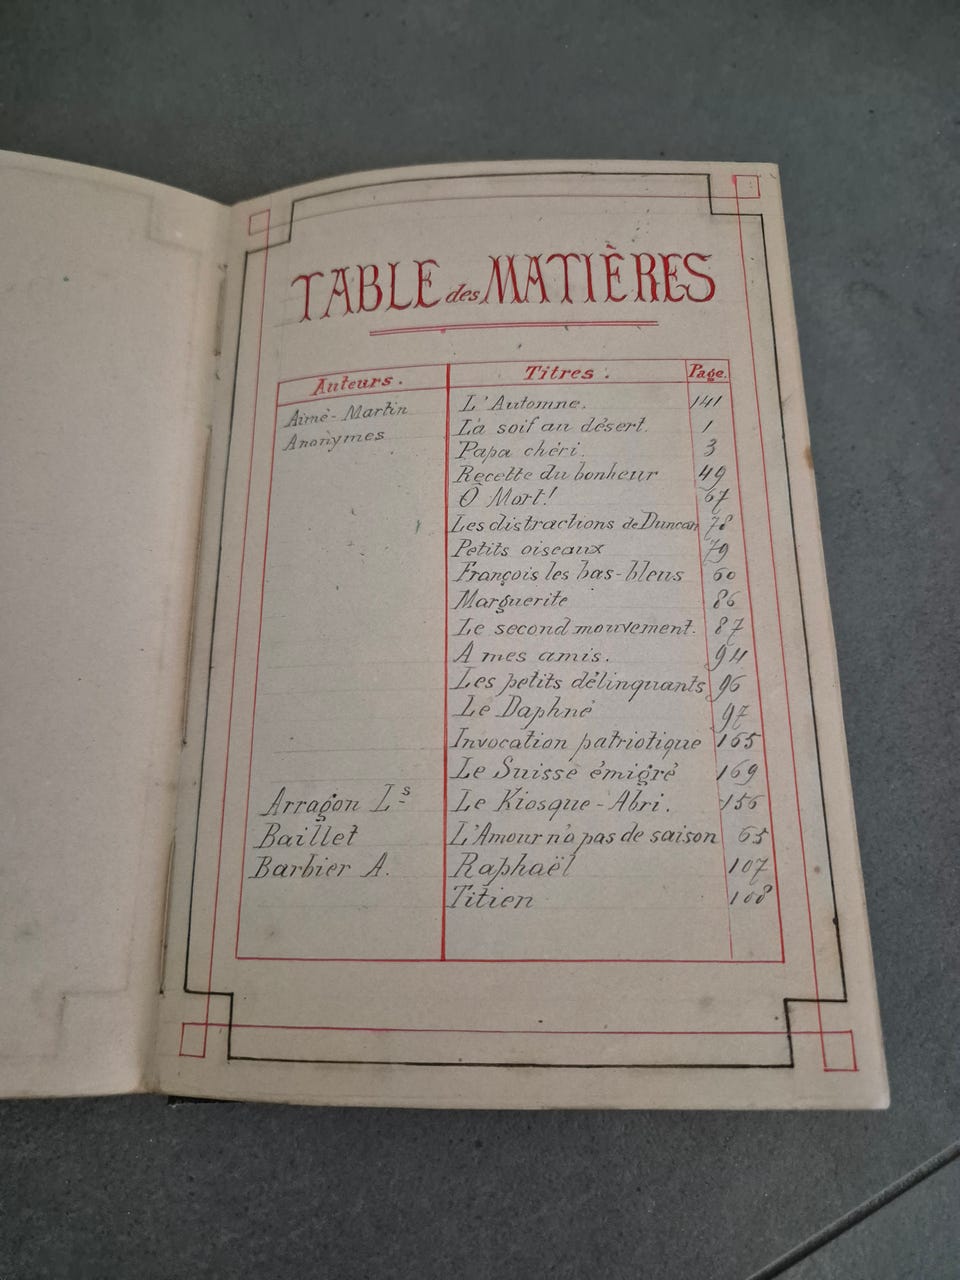 TABLE des MATIÈRES
Auteurs. Titres. Page.
Aimé-Martin L'Automne. 141
Anonymes La soif au désert. 1
Papa chéri. 3
Recette du bonheur 49
Ô Mort! 67
Les distractions de Duncan 78
Petits oiseaux 79
François les bas-bleus 60
Marguerite 86
Le second mouvement. 87
A mes amis. 94
Les petits délinquants 96
Le Daphné 97
Invocation patriotique 165
Le Suisse émigré 169
Arragon Ls Le Kiosque-Abri. 156
Baillet L'Amour n'a pas de saison 65
Barbier A. Raphaël 107
Titien 108